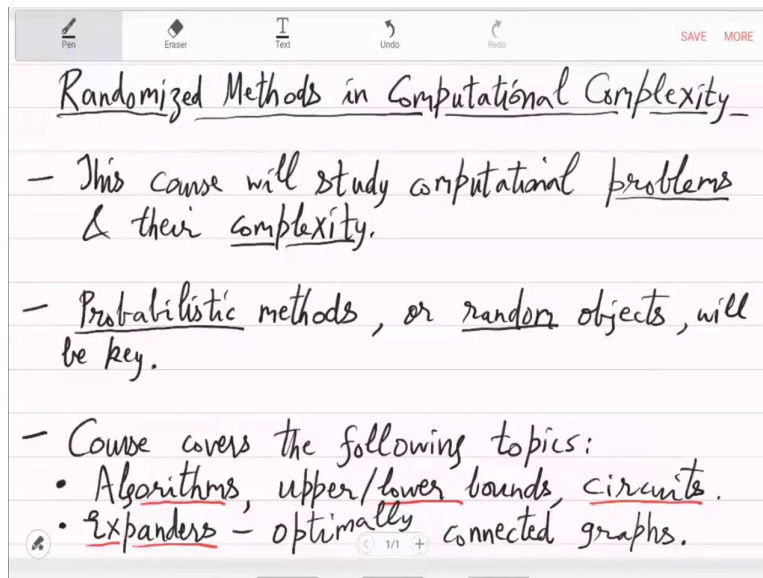 Pen Eraser Text Undo Redo SAVE MORE
Randomized Methods in Computational Complexity
- This course will study computational problems
& their complexity.
- Probabilistic methods, or random objects, will
be key.
- Course covers the following topics:
• Algorithms, upper/lower bounds, circuits.
• Expanders - optimally connected graphs.
1/1